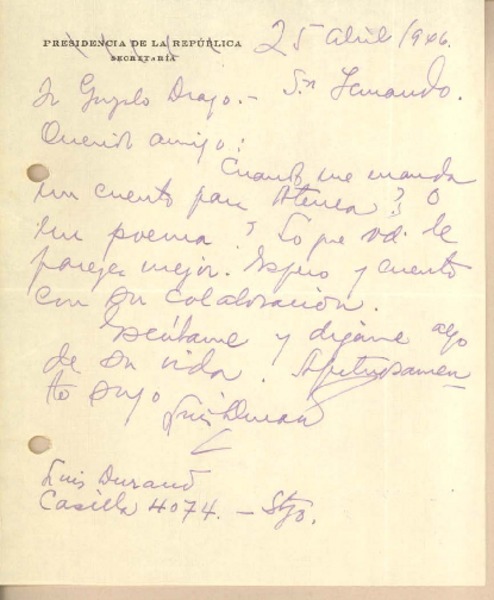 PRESIDENCIA DE LA REPÚBLICA
SECRETARÍA
25 Abril 1946.
Sr Gonzalo Drago.- Sn Fernando.
Querido amigo:
Cuando me manda
un cuento para Atenea? O
un poema? Lo que Ud. le
parezca mejor. Espero y cuento
con su colaboración.
Escríbame y dígame algo
de su vida. Afectuosamen-
te suyo
Luis Durand
Luis Durand
Casilla 4074. - Stgo.